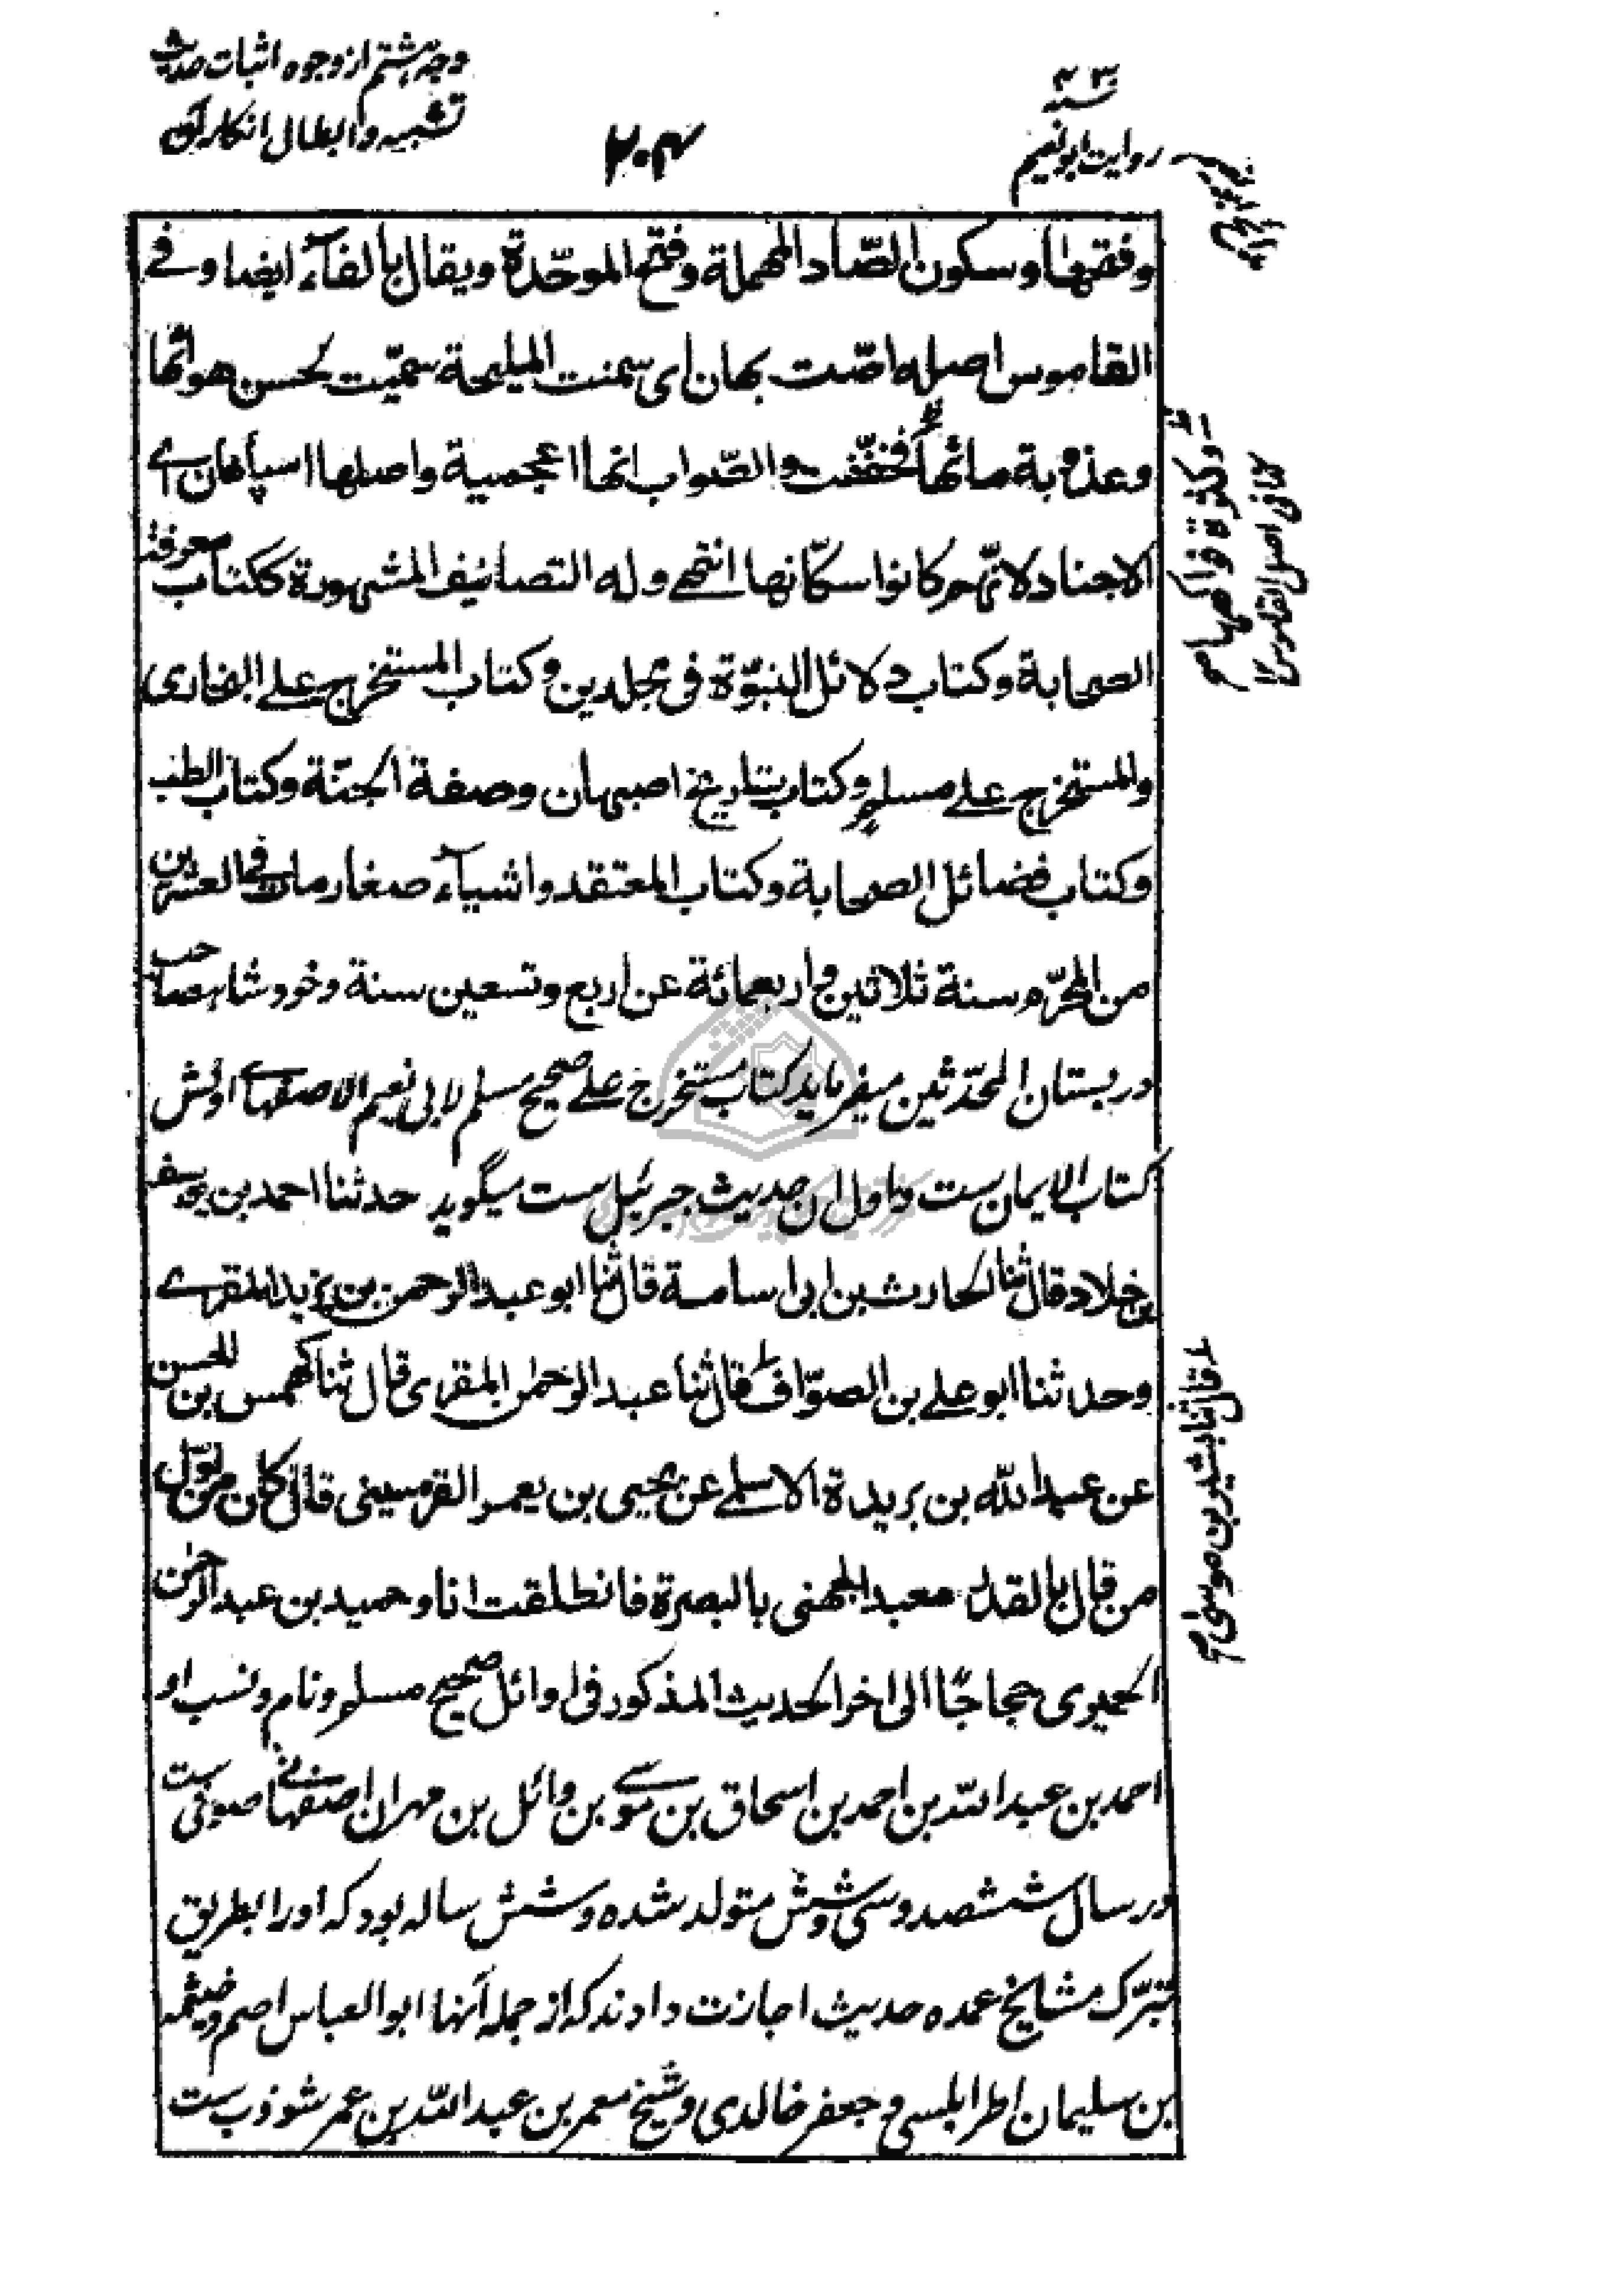 وجه هشتم از وجوه اثبات حدیث
تشبیه و ابطال انکار آن
۲۰۴
سنه ۴۳۰
روایت ابو نعیم
وفتحها وسكون الصّاد المهملة وفتح الموحّدة ويقال بالفآء ايضا وفے
القاموس اصله اصّت بهان اى سمنت المليحة سمّيت لحسن هوائها
وعذوبة مائها فخفّفت والصّواب انها اعجمية واصلها اسپاهان اے
الاجناد لانّهم كانوا سكّانها انتهے وله التصانيف المشهورة ككتاب معرفة
الصحابة وكتاب دلائل النبوّة فى مجلدين وكتاب المستخرج علے البخارى
والمستخرج علے مسلم وكتاب تاريخ اصبهان وصفة الجنّة وكتاب الطب
وكتاب فضائل الصحابة وكتاب المعتقد واشيآء صغار مات فى العشرين
من المحرّم سنة ثلاثين واربعمائة عن اربع وتسعين سنة وخود شاهصاحب
در بستان المحدّثین میفرماید کتاب مستخرج علے صحیح مسلم لابی نعیم الاصفهانے اولش
کتاب الایمان ست و اول ان حدیث جبرئیل ست میگوید حدثنا احمد بن یوسف
بن خلاد قال ثنا الحارث بن ابى اسامة قال ثنا ابو عبد الرحمن بن يزيد المقرے
وحدثنا ابو علے بن الصوّاف قال ثنا عبد الرحمٰن المقرى قال ثنا كهمس بن الحسن
عن عبد الله بن بريدة الاسلمے عن يحيى بن يعمر القرمسينى قال كان من اوّل
من قال بالقدر معبد الجهنى بالبصرة فانطلقت انا وحميد بن عبد الرحمٰن
الحميرى حجاجًا الى اخر الحديث المذكور فى اوائل صحيح مسلم و نام و نسب او
احمد بن عبد اللّه بن احمد بن اسحاق بن موسے بن وائل بن مهران اصفهانے صوفی ست
در سال ششصد و سی و شش متولد شده و شش ساله بود که اورا بطریق
تبرّک مشایخ عمده حدیث اجازت دادند که از جمله آنها ابو العباس اصم و خیثمه
بن سلیمان اطرابلسی و جعفر خالدی و شیخ معمر بن عبد اللّه بن عمر شوذب ست
وكثرة فواكهها م
كذا فى اصل القاموس ۱۲
قال ثنا بشير بن موسى م